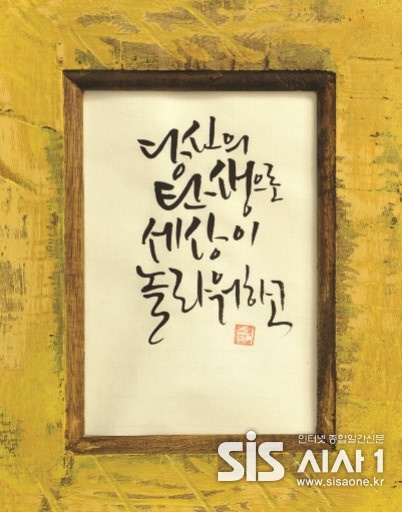 당신의
탄생으로
세상이
놀라워하고
인터넷 종합일간신문
SiS 시사1
www.sisaone.kr